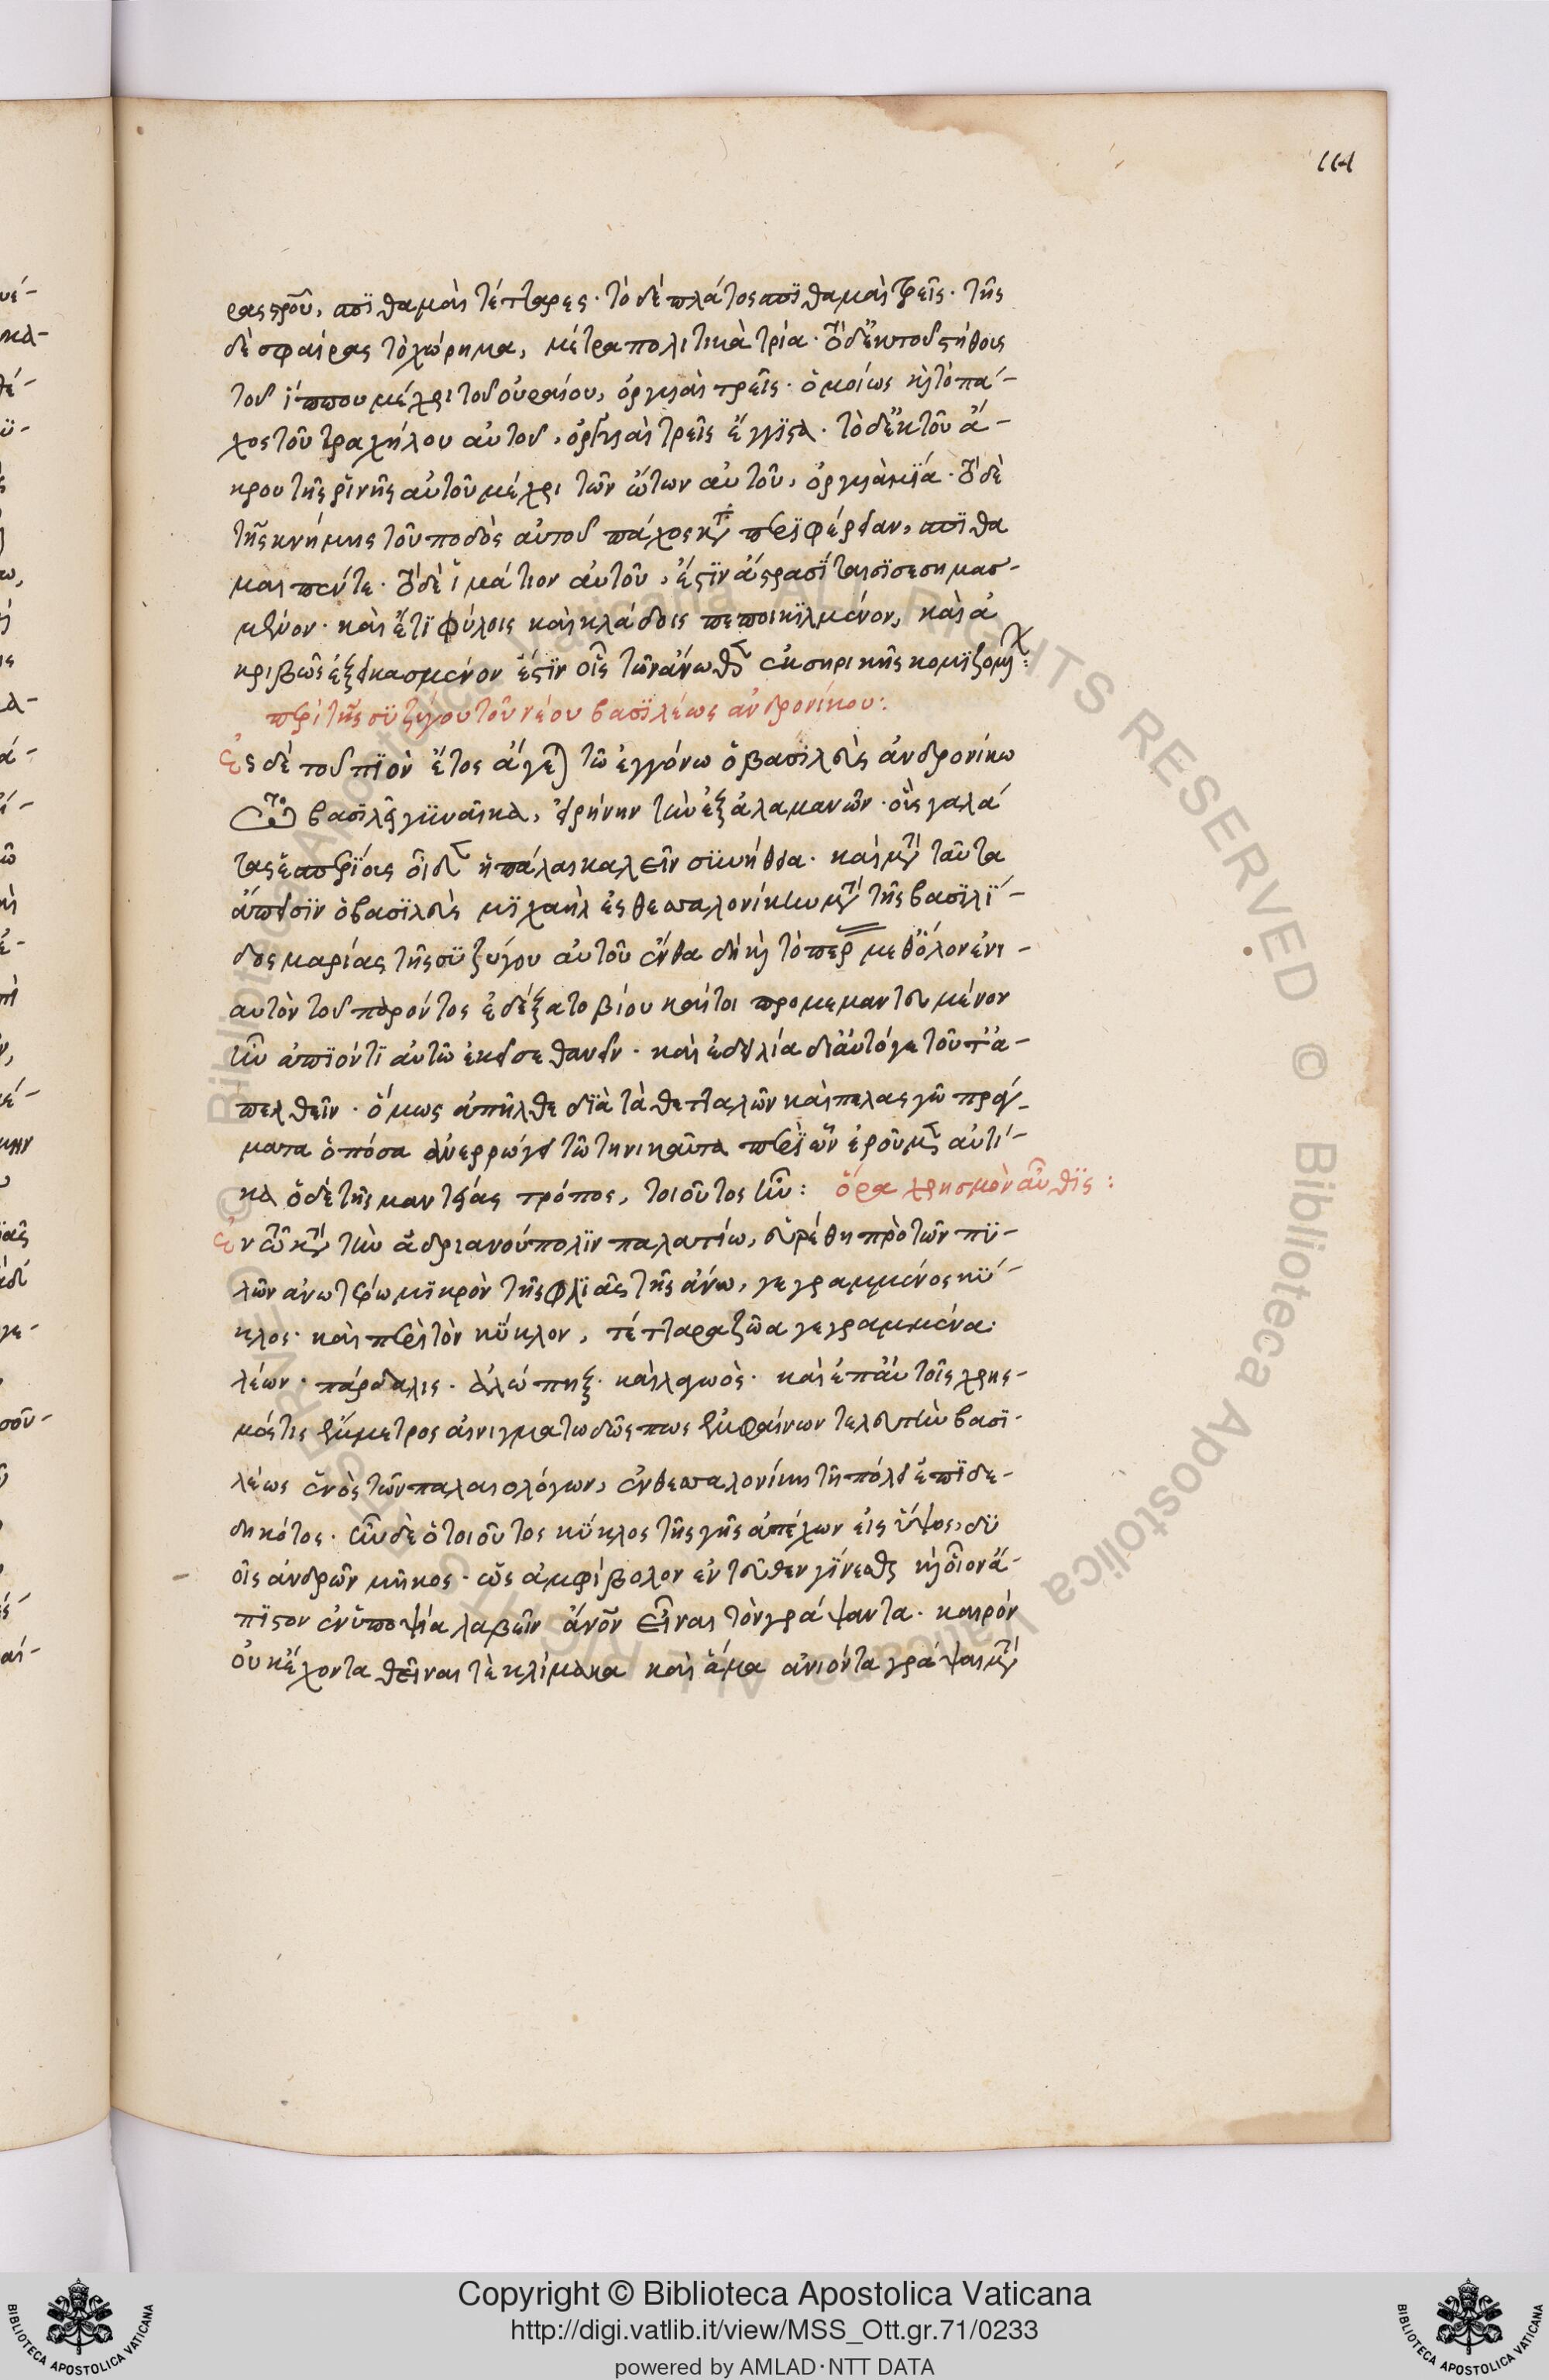 114
ρας σροῦ, σπϊθαμαὶ τέτταρες· τὸ δὲ πλάτος σπϊθαμαὶ τρεῖς· τῆς
δὲ σφαίρας τὸ χώρημα, μέτρα πολιτικὰ τρία· τὸ δ' ἐκ τοῦ στήθους
τοῦ ἵππου μέχρι τοῦ οὐραίου, ὀργυιαὶ τρεῖς· ὁμοίως κ(αὶ) τὸ πά-
χος τοῦ τραχήλου αὐτοῦ, ὀργυιαὶ τρεῖς ἔγγϊστα· τὸ δ' ἐκ τοῦ ἄ-
κρου τῆς ρϊνῆς αὐτοῦ μέχρι τῶν ὤτων αὐτοῦ, ὀργυιὰ μΐα· τὸ δὲ
τῆς κνήμης τοῦ ποδὸς αὐτοῦ πάχος κατὰ περϊφέρειαν, σπϊθα
μαὶ πέντε· τὸ δὲ ἱμάτιον αὐτοῦ, ἔστϊν ἄστρασΐ σεσημασ-
μένον· καὶ ἔτϊ φύλοις καὶ κλάδοις πεποικϊλμένον, καὶ ἀ
κριβῶς ἐξεικασμένον ἔστϊν οἷς τῶν ἄνωθεν ἐκ σηρικῆς κομϊζομέν:
περὶ τῆς σϋζύγου τοῦ νέου βασϊλέως ἀνδρονίκου:
Ἐς δὲ τοῦπϊὸν ἔτος ἄγεται τῶ ἐγγόνω ὁ βασϊλεὺς ἀνδρονίκω
τῶ βασϊλεῖ γϋναῖκα, εἰρήνην τὴν ἐξ ἀλαμανῶν· οὓς γαλά
τας ἑσπερΐους οἶδεν ἡ πάλαι καλεῖν σϋνήθεια· καὶ μετὰ ταῦτα
ἄπεισϊν ὁ βασϊλεὺς μϊχαὴλ ἐς θεσσαλονίκην μετὰ τῆς βασϊλΐ-
δος μαρίας τῆς σϋζύγου αὐτοῦ ἔνθα δὴ κ(αὶ) τὸ πέρας μεθ' ὅλον ἐνι-
αυτὸν τοῦ παρόντος ἐδέξατο βίου καίτοι προμεμαντευμένον
ἦν ἀπϊόντϊ αὐτῶ ἐκεῖσε θανεῖν· καὶ ἐδειλία δι' αὐτό γε τοῦτ' ἀ-
πελθεῖν· ὅμως ἀπῆλθε δϊὰ τὰ θετταλῶν καὶ πελασγῶν πράγ-
ματα ὁπόσα ἀνερρώγει τῶ τηνικαῦτα περὶ ὧν ἐροῦμεν αὐτί-
κα ὁ δὲ τῆς μαντείας τρόπος, τοιοῦτος ἦν: ὅρα χρησμὸν αὖθϊς:
Ἐν τῶ κατὰ τὴν ἀδριανούπολϊν παλατίω, εὑρέθη πρὸ τῶν πϋ-
λῶν ἀνωτέρω μϊκρὸν τῆς φλϊᾶς τῆς ἄνω, γεγραμμένος κΰ-
κλος· καὶ περὶ τὸν κΰκλον, τέτταρα ζῶα γεγραμμένα·
λέων· πάρδαλις· ἀλώπηξ· καὶ λαγωός· καὶ ἐπ' αὐτοῖς χρης-
μός τις ἔμμετρος αἰνιγματωδῶς πως ἐμφαίνων τελευτὴν βασϊ-
λέως ἑνὸς τῶν παλαιολόγων, ἐν θεσσαλονίκη τῆ πόλει ἐπϊδε-
δηκότος· ἦν δὲ ὁ τοιοῦτος κΰκλος τῆς γῆς ἀπέχων εἰς ὕψος, δϋ
οῖς ἀνδρῶν μῆκος· ὡς ἀμφίβολον ἐντεῦθεν γΐνεσθαι κ(αὶ) οἷον ἄ-
πϊστον ἐν ὑποψία λαβεῖν ἄνον εἶναι τὸν γράψαντα· καιρὸν
οὐκ ἔχοντα θεῖναί τε κλίμακα καὶ ἅμα ἀνιόντα γράψαι μετὰ
Copyright © Biblioteca Apostolica Vaticana
http://digi.vatlib.it/view/MSS_Ott.gr.71/0233
powered by AMLAD·NTT DATA